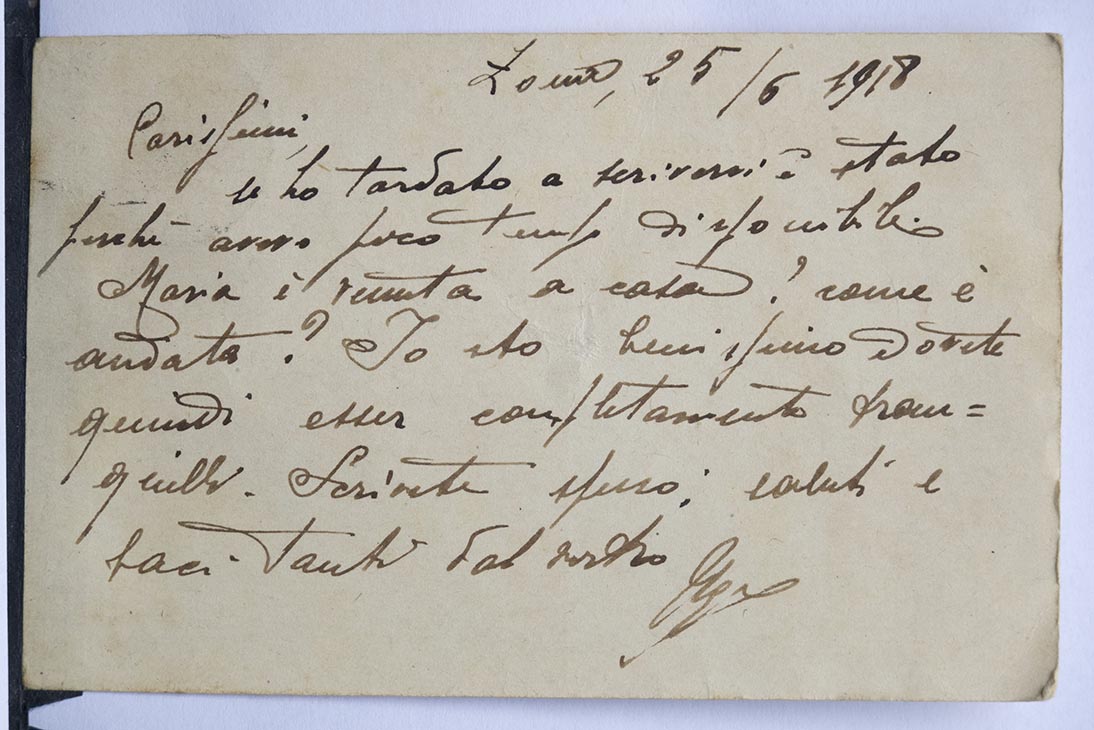 Zona, 25/6 1918
Carissimi,
se ho tardato a scrivervi è stato
perchè avevo poco tempo disponibile.
Maria è venuta a casa? come è
andata? Io sto benissimo e dovete
quindi esser completamente tran=
quilli. Scrivete spesso; saluti e
baci tanti dal vostro